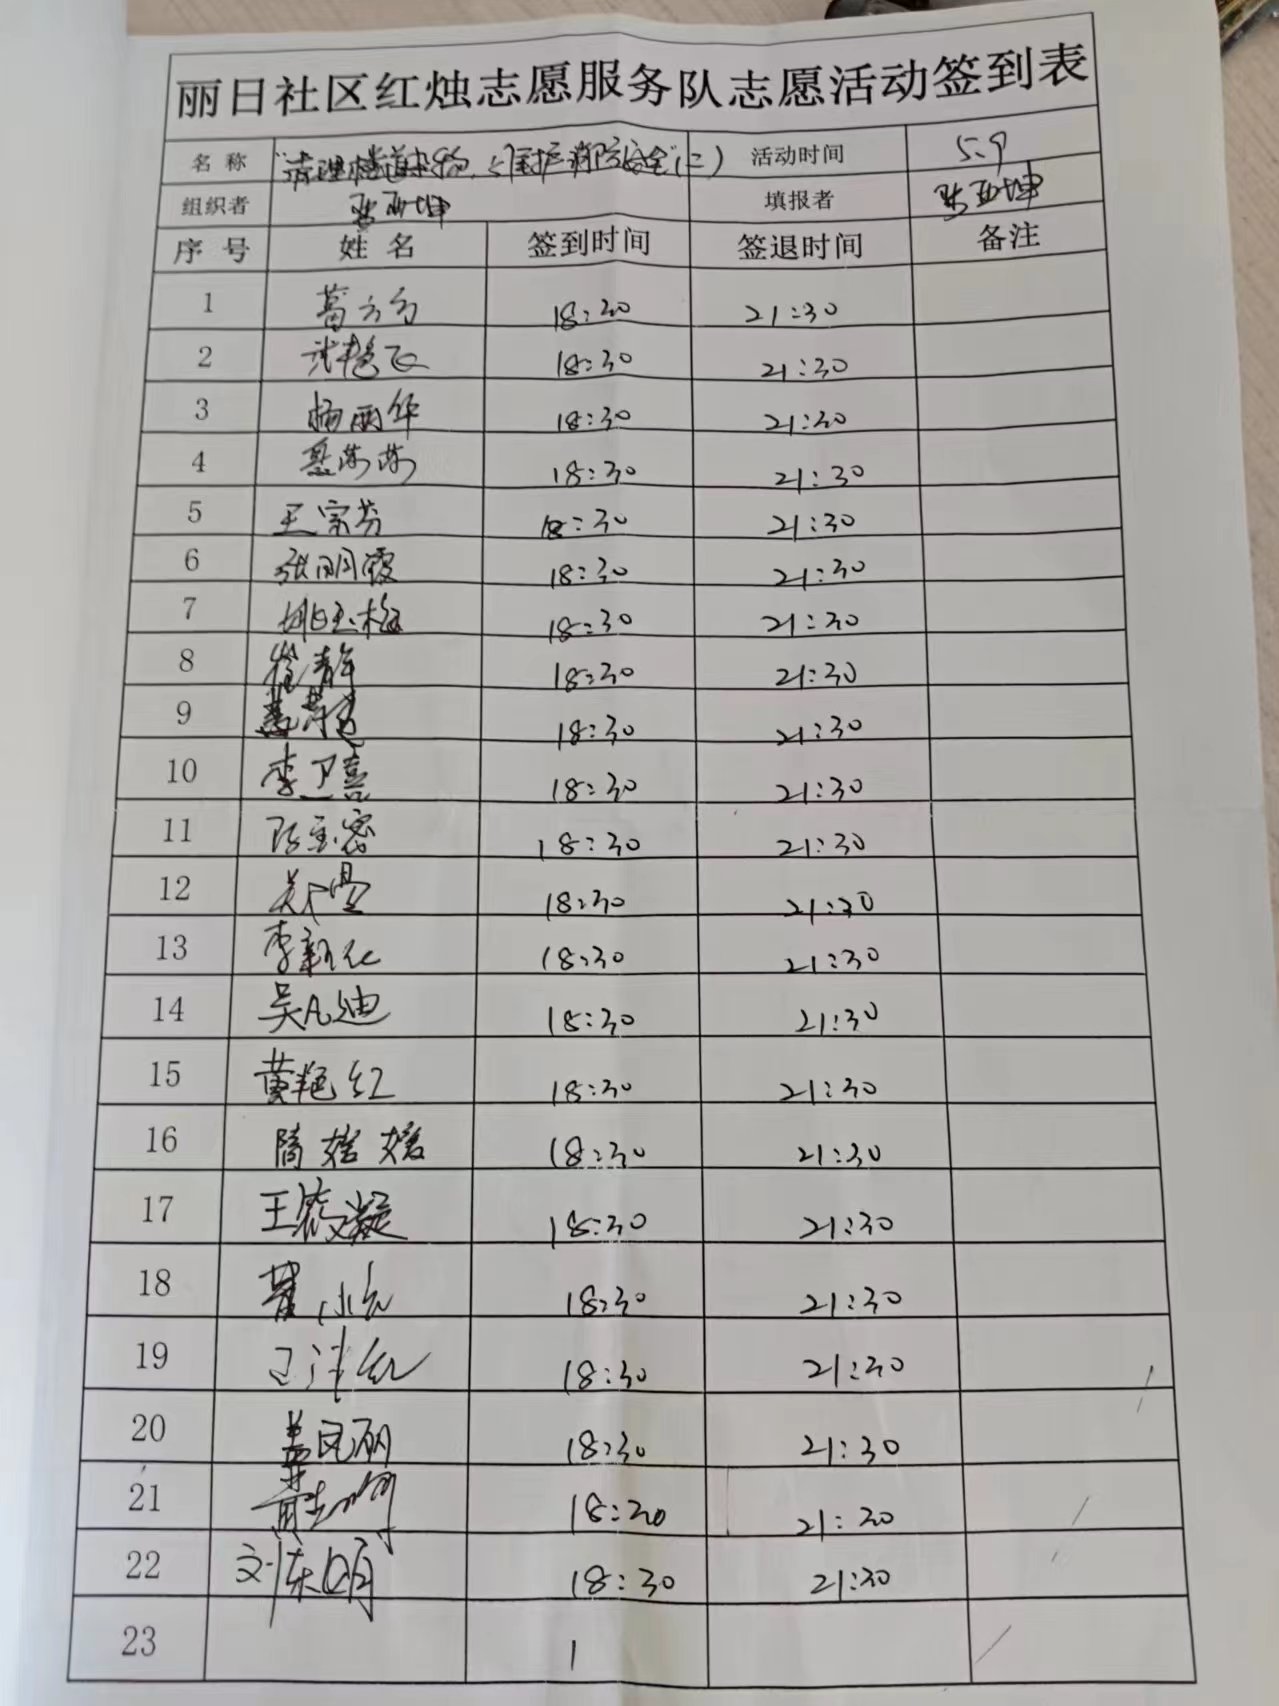 丽日社区红烛志愿服务队志愿活动签到表
名称 "清理楼道杂物、维护消防安全"(二) 活动时间 5.9
组织者 张亚坤 填报者 张亚坤
序号 姓名 签到时间 签退时间 备注
1 葛方方 18:30 21:30
2 武艳飞 18:30 21:30
3 杨丽华 18:30 21:30
4 莎莎 18:30 21:30
5 王宗芳 18:30 21:30
6 张明霞 18:30 21:30
7 姚玉梅 18:30 21:30
8 崔静 18:30 21:30
9 18:30 21:30
10 李卫喜 18:30 21:30
11 18:30 21:30
12 18:30 21:30
13 李新化 18:30 21:30
14 吴凡迪 18:30 21:30
15 黄艳红 18:30 21:30
16 隋媛媛 18:30 21:30
17 王筱凝 18:30 21:30
18 18:30 21:30
19 18:30 21:30
20 姜凤丽 18:30 21:30
21 18:30 21:30
22 刘东明 18:30 21:30
23